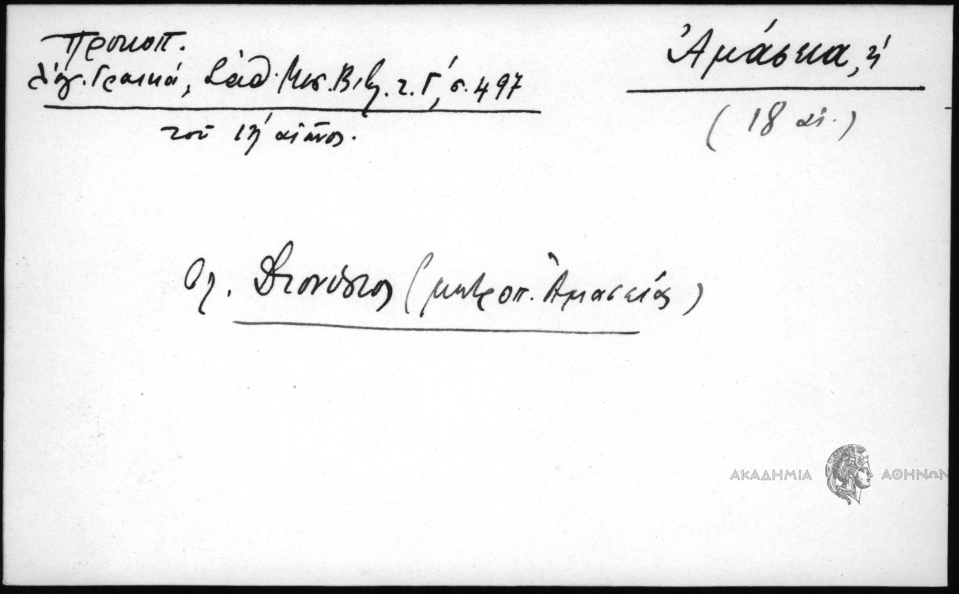 Προκοπ.
λόγ. Γραικοί, Σάθ. Μεσ. Βιβ. τ. Γ', σ. 497
τοῦ ιη' αἰῶνος.
Ἀμάσεια, ἡ
(18 αἰ.)
βλ. Διονύσιος (μητροπ. Ἀμασείας)
ΑΚΑΔΗΜΙΑ ΑΘΗΝΩΝ